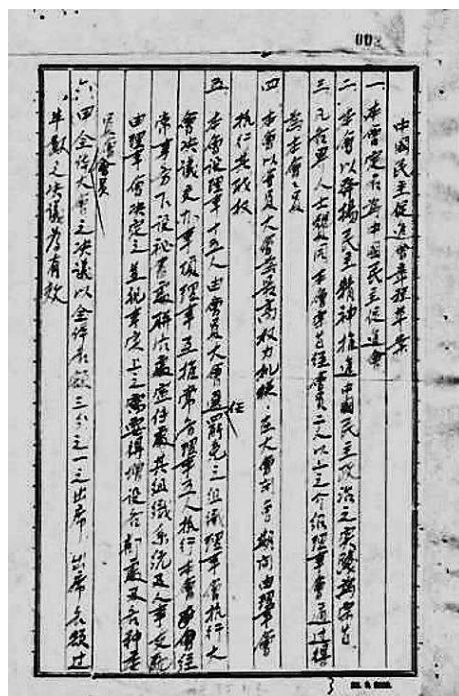 中國民主促進會章程草案
一 本會定名為中國民主促進會
二 本會以發揚民主精神推進中國民主政治之實踐為宗旨
三 凡各界人士贊同本會宗旨經會員二人以上之介紹理事會通過得
為本會會員
四 本會以會員大會為最高權力機關 在大會閉會期間由理事會
執行其職權
五 本會設理事十五人由會員大會選任罷免之組織理事會執行大
會決議及本會事項理事互推常務理事五人執行本會經
常事務下設秘書處研究處其組織系統及人事支配
由理事會決定之並視事實上之需要得增設各部處及各種委
員會
六 甲 全體大會之決議以全體名額三分之一之出席 出席名額過
半數之決議為有效
3